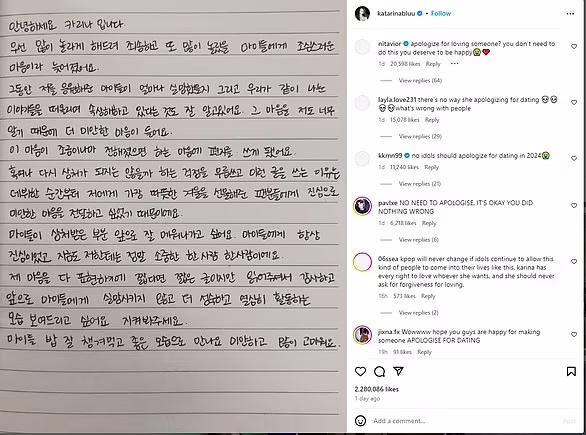 안녕하세요 카리나 입니다
우선 많이 놀라게 해드려 죄송하고 또 많이 놀랐을 마이들에게 조심스러운
마음이라 늦어졌어요.
그동안 저를 응원해준 마이들이 얼마나 실망했을지 그리고 우리가 같이 나눈
이야기들을 떠올리며 속상해하고 있다는것도 잘 알고있어요. 그 마음을 저도 너무
알기 때문에 더 미안한 마음이 들어요.
이 마음이 조금이나마 전해졌으면 하는 마음에 편지를 쓰게 됐어요.
혹여나 다시 상처가 되지는 않을까 하는 걱정을 무릅쓰고 이런 글을 쓰는 이유는
데뷔한 순간부터 저에게 가장 따뜻한 겨울을 선물해준 팬분들에게 진심으로
미안한 마음을 전달하고 싶었기 때문이에요.
마이들이 상처받은 부분 앞으로 잘 메워나가고 싶어요. 마이들에게 항상
진심이었고 지금도 저한테는 정말 소중한 한 사람 한사람이에요.
제 마음을 다 표현하기에 짧다면 짧은 글이지만 읽어주셔서 감사하고
앞으로 마이들에게 실망시키지 않고 더 성숙하고 열심히 활동하는
모습 보여드리고 싶어요 지켜봐주세요.
마이들 밥 잘 챙겨먹고 좋은 모습으로 만나요 미안하고 많이 고마워요.
katarinabluu • Follow
nitavior apologize for loving someone? you don't need to
do this you deserve to be happy😭❤️
1d 20,598 likes Reply •••
View replies (64)
layla.love231 there's no way she apologizing for dating 💀💀
💀💀what's wrong with people
1d 15,078 likes Reply
View replies (29)
kkmn99 no idols should apologize for dating in 2024😭
1d 11,240 likes Reply
View replies (21)
pavlxe NO NEED TO APOLOGISE, IT'S OKAY YOU DID
NOTHING WRONG
1d 6,218 likes Reply
View replies (6)
06ssea kpop will never change if idols continue to allow this
kind of people to come into their lives like this, karina has
every right to love whoever she wants, and she should never
ask for forgiveness for loving.
16h 573 likes Reply
View replies (2)
jixna.fx Wowwww hope you guys are happy for making
someone APOLOGISE FOR DATING
19h 91 likes Reply
2,280,086 likes
1 day ago
Add a comment...
Post